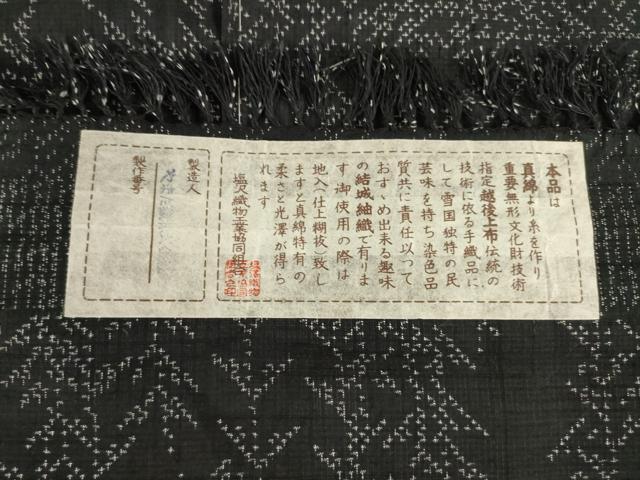 本品は
真綿より糸を作り
重要無形文化財技術
指定越後上布伝統の
技術に依る手織品に
して雪国独特の民
芸味を持ち染色品
質共に責任以って
おすゝめ出来る趣味
の結城紬織で有りま
す御使用の際は
地入(仕上糊抜)致し
ますと真綿特有の
柔さと光澤が得ら
れます
塩沢織物工業協同組合
製造人
製作番号